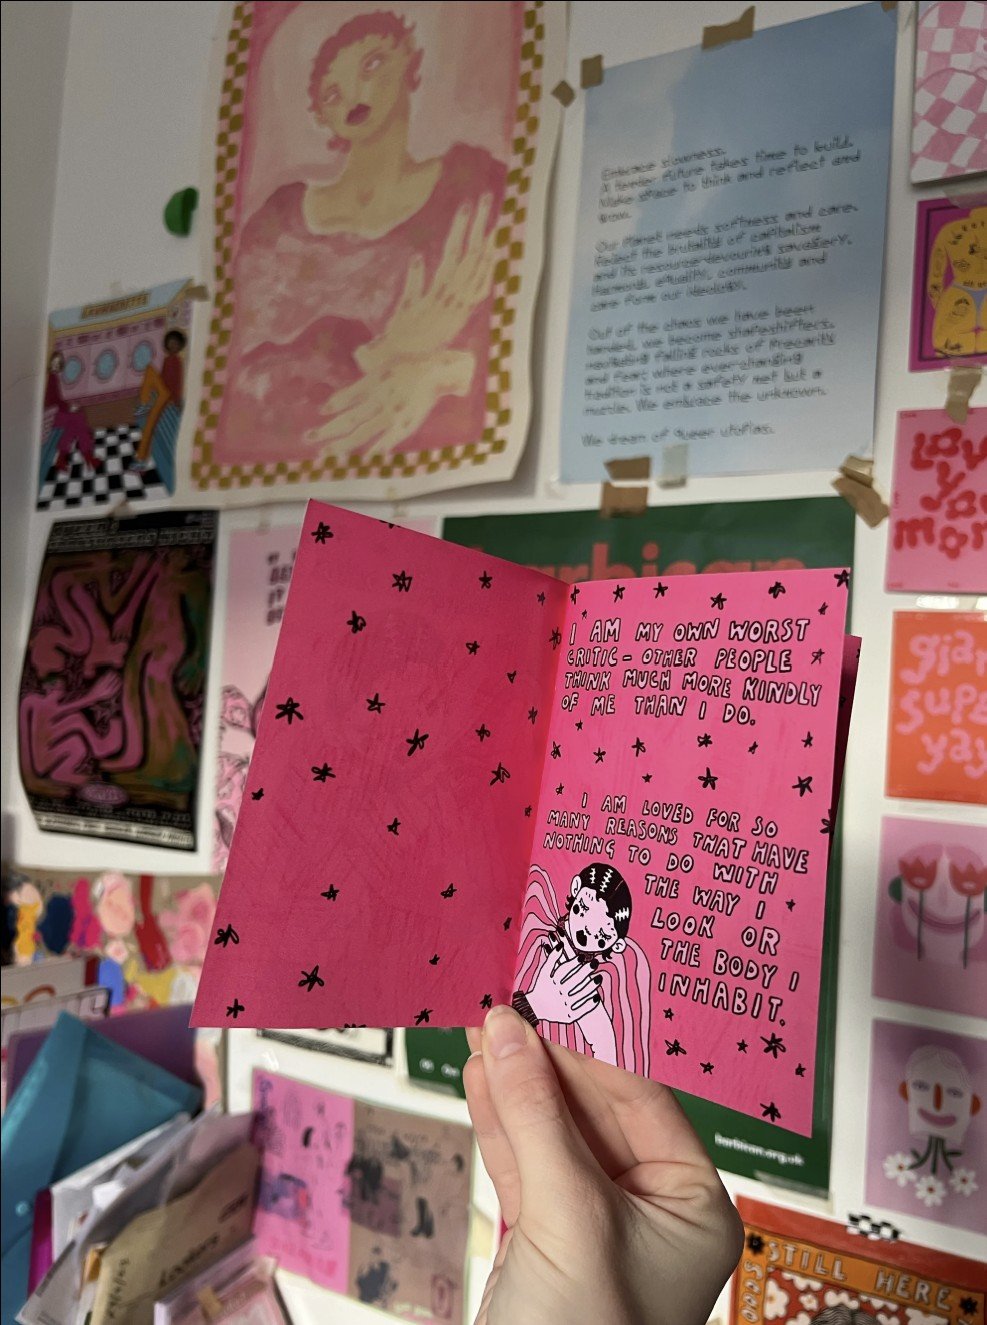 LAUNDRETTE
Embrace slowness.
A tender future takes time to build.
Make space to think and reflect and
grow.
Our Planet needs softness and care.
Reject the brutality of capitalism
and its resource-devouring savagery.
Harmony, equality, community and
care form our ideology.
Out of the chaos we have been
handed, we become shapeshifters,
navigating falling rocks of precarity
and fear, where ever-changing
tradition is not a safety net but a
hurdle. We embrace the unknown.
We dream of Queer utopias.
LOVE
you
mon
barbican
I AM MY OWN WORST
CRITIC - OTHER PEOPLE
THINK MUCH MORE KINDLY
OF ME THAN I DO.
I AM LOVED FOR SO
MANY REASONS THAT HAVE
NOTHING TO DO WITH
THE WAY I
LOOK OR
THE BODY I
INHABIT.
gian
supe
yay
barbican.org.uk
STILL HERE